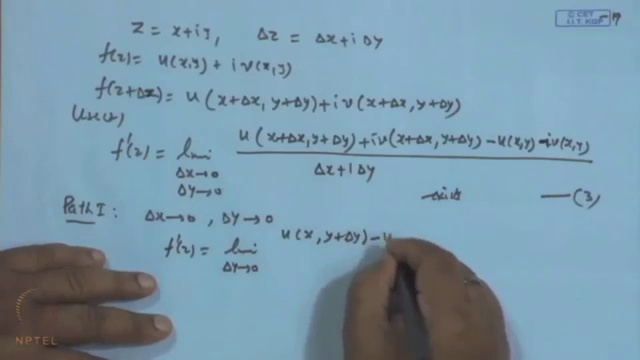 © CET
I.I.T. KGP
Z = x+iy, Δz = Δx+iΔy
f(z) = u(x,y) + iv(x,y)
f(z+Δz) = u(x+Δx, y+Δy)+iv(x+Δx, y+Δy)
f'(z) = lim Δx→0 Δy→0 u(x+Δx, y+Δy)+iv(x+Δx, y+Δy) - u(x,y) - iv(x,y) / Δx+iΔy
exists —(3)
Path I: Δx→0, Δy→0
f'(z) = lim Δy→0 u(x, y+Δy) - u
NPTEL